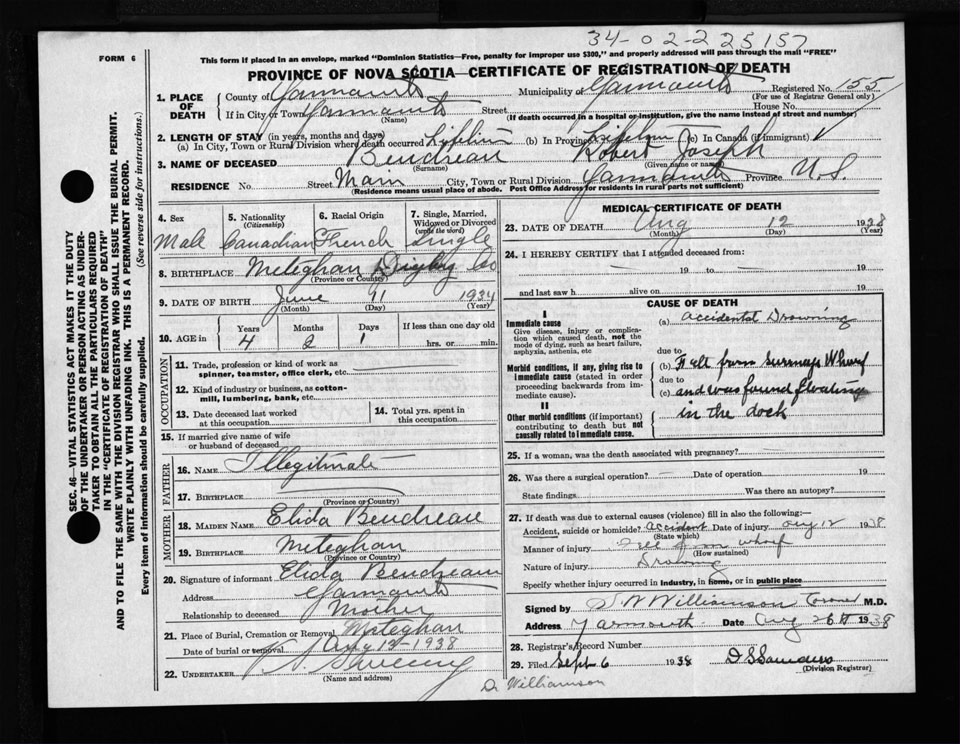 34-02-225157
FORM 6
This form if placed in an envelope, marked "Dominion Statistics—Free, penalty for improper use $300," and properly addressed will pass through the mail "FREE"
PROVINCE OF NOVA SCOTIA—CERTIFICATE OF REGISTRATION OF DEATH
1. PLACE OF DEATH
County of Yarmouth Municipality of Yarmouth Registered No. 155
(For use of Registrar General only)
If in City or Town Yarmouth Street House No.
(Name) (If death occurred in a hospital or institution, give the name instead of street and number)
2. LENGTH OF STAY (in years, months and days)
(a) In City, Town or Rural Division where death occurred (b) In Province (c) In Canada (if immigrant)
3. NAME OF DECEASED Beudreau Robert Joseph
(Surname) (Given name or names)
RESIDENCE No. Street Main City, Town or Rural Division Yarmouth Province N.S.
(Residence means usual place of abode. Post Office Address for residents in rural parts not sufficient)
4. Sex
Male
5. Nationality
(Citizenship)
Canadian
6. Racial Origin
French
7. Single, Married, Widowed or Divorced
(write the word)
Single
8. BIRTHPLACE Meteghan Digby Co
(Province or Country)
9. DATE OF BIRTH June 11 1934
(Month) (Day) (Year)
10. AGE in
Years Months Days If less than one day old
4 2 1 hrs. or min.
OCCUPATION
11. Trade, profession or kind of work as
spinner, teamster, office clerk, etc.
12. Kind of industry or business, as cotton-
mill, lumbering, bank, etc.
13. Date deceased last worked
at this occupation
14. Total yrs. spent in
this occupation
15. If married give name of wife
or husband of deceased
FATHER
16. NAME Illegitmate
17. BIRTHPLACE
(Province or Country)
MOTHER
18. MAIDEN NAME Elida Beudreau
19. BIRTHPLACE Meteghan
(Province or Country)
20. Signature of informant Elida Beudreau
Address Yarmouth
Relationship to deceased Mother
21. Place of Burial, Cremation or Removal Meteghan
Date of burial or removal Aug 13-1938
22. UNDERTAKER Sweeny
(Name and address)
MEDICAL CERTIFICATE OF DEATH
23. DATE OF DEATH Aug 12 1938
(Month) (Day) (Year)
24. I HEREBY CERTIFY that I attended deceased from:
— 19 to — 19
and last saw h alive on 19
CAUSE OF DEATH
I
Immediate cause
Give disease, injury or complica-
tion which caused death, not the
mode of dying, such as heart failure,
asphyxia, asthenia, etc
(a) Accidental Drowning
due to
Morbid conditions, if any, giving rise to
immediate cause (stated in order
proceeding backwards from im-
mediate cause).
(b) Fell from Wharf
due to
(c) and was found floating
in the dock
II
Other morbid conditions (if important)
contributing to death but not
causally related to immediate cause.
25. If a woman, was the death associated with pregnancy?
26. Was there a surgical operation? — Date of operation 19
State findings Was there an autopsy?
27. If death was due to external causes (violence) fill in also the following:
Accident, suicide or homicide? Accident Date of injury Aug 12 1938
(State which)
Manner of injury from wharf
(How sustained)
Nature of injury Drowning
Specify whether injury occurred in Industry, in home, or in public place
Signed by Williamson Coroner M.D.
Address Yarmouth Date Aug 26 1938
28. Registrar's Record Number
29. Filed Sept-6 1938 D S Saunders
(Division Registrar)
D. Williamson
SEC. 46—VITAL STATISTICS ACT MAKES IT THE DUTY
OF THE UNDERTAKER OR PERSON ACTING AS UNDER-
TAKER TO OBTAIN ALL THE PARTICULARS REQUIRED
IN THE "CERTIFICATE OF REGISTRATION OF DEATH"
AND TO FILE THE SAME WITH THE DIVISION REGISTRAR WHO SHALL ISSUE THE BURIAL PERMIT.
WRITE PLAINLY WITH UNFADING INK. THIS IS A PERMANENT RECORD.
Every item of information should be carefully supplied. (See reverse side for instructions.)